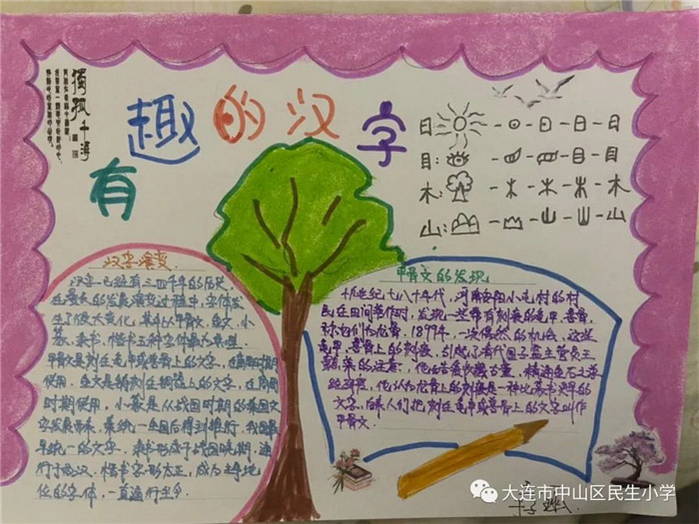 有趣的汉字
日:
目:
木:
山:
汉字演变
汉字已经有三四千年的历史,
在漫长的发展演变过程中,字体发
生了很大变化,其中以甲骨文、金文、小
篆、隶书、楷书五种字体最为典型.
甲骨文是刻在龟甲或兽骨上的文字,
使用,金文是铸刻在铜器上的文字,在周朝
时期使用,小篆是从战国时期的秦国文
字发展而来,秦统一全国后得到推行,我国最
早统一的文字.隶书形成于战国晚期,通
行于两汉.楷书字形方正,成为
化的字体,一直通行至今.
甲骨文的发现
十九世纪七八十年代,河南安阳小屯村的村
民在田间劳作时,发现一些带有刻痕的龟甲、兽骨,
称它们为龙骨,1899年,一次偶然的机会,这些
龟甲、兽骨上的刻痕,引起了清代国子监主管员王
懿荣的注意,
他认为龙骨上的刻痕是一种比篆书更早的
文字.后来人们把刻在龟甲或兽骨上的文字叫作
甲骨文.
大连市中山区民生小学